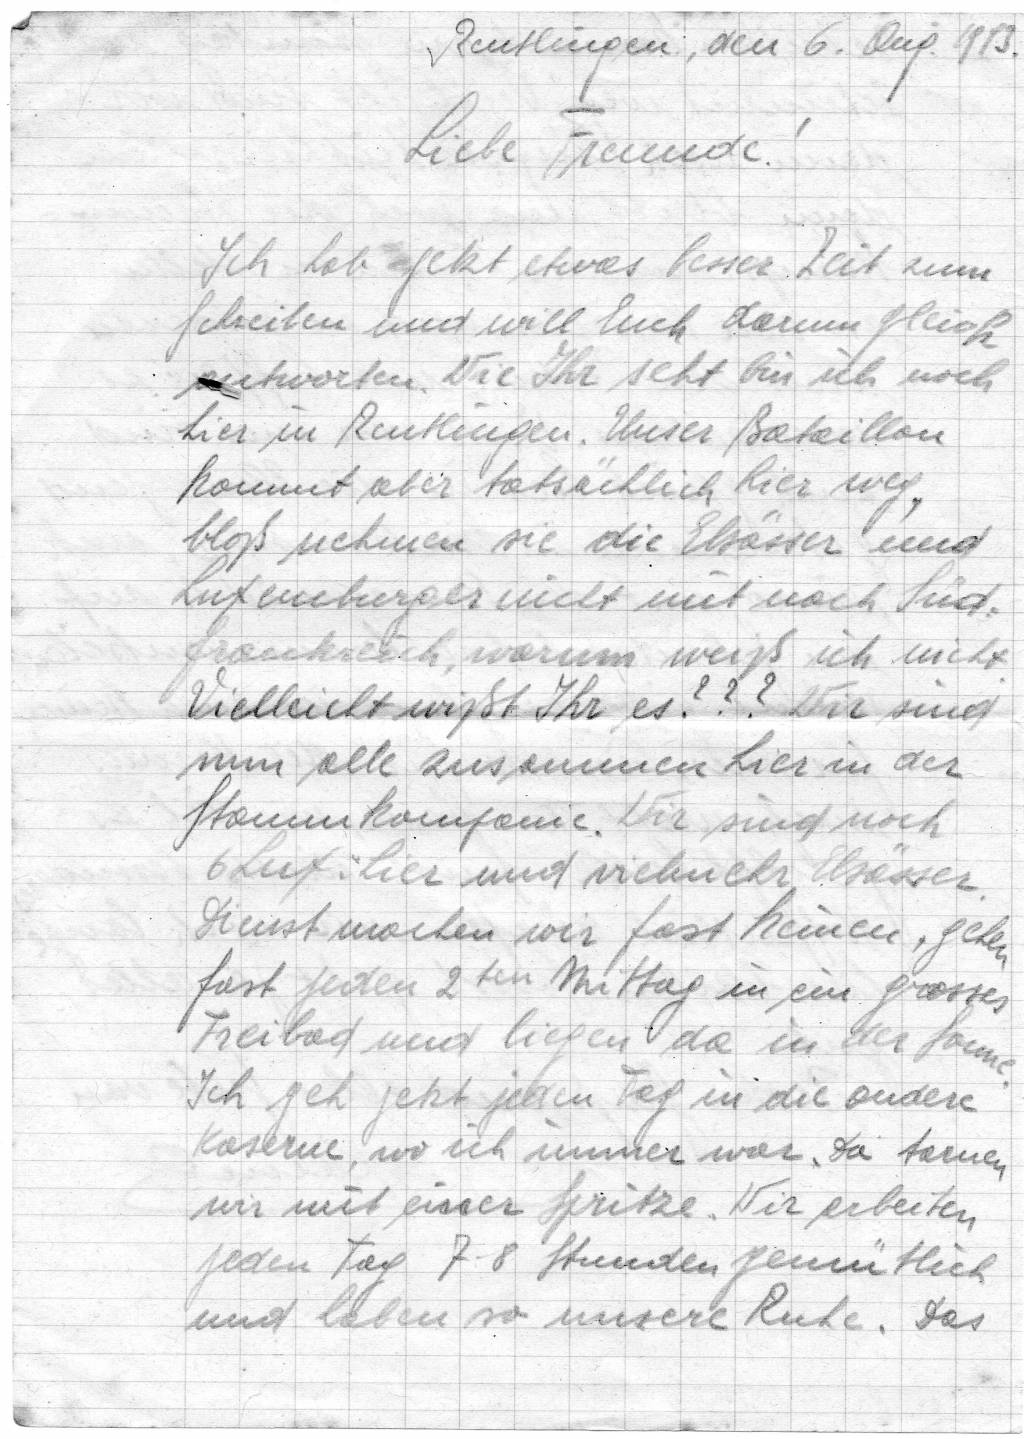 Reutlingen, den 6. Aug. 1943.
Liebe Freunde!
Ich hab jetzt etwas besser Zeit zum
schreiben und will Euch darum gleich
antworten. Wie Ihr seht bin ich noch
hier in Reutlingen. Unser Bataillon
kommt aber tatsächlich hier weg,
bloß nehmen sie die Elsässer und
Luxemburger nicht mit nach Süd-
frankreich, warum weiß ich nicht
Vielleicht wißt Ihr es??? Wir sind
nun alle zusammen hier in der
Stammkompanie. Wir sind noch
6 Lux. hier und vielmehr Elsässer.
Dienst machen wir fast keinen, gehen
fast jeden 2ten Mittag in ein grosses
Freibad und liegen da in der Sonne.
Ich geh jetzt jeden Tag in die andere
Kaserne, wo ich immer war. Da tarnen
wir mit einer Spritze. Wir arbeiten
jeden Tag 7-8 Stunden gemütlich
und haben so unsere Ruhe. Das